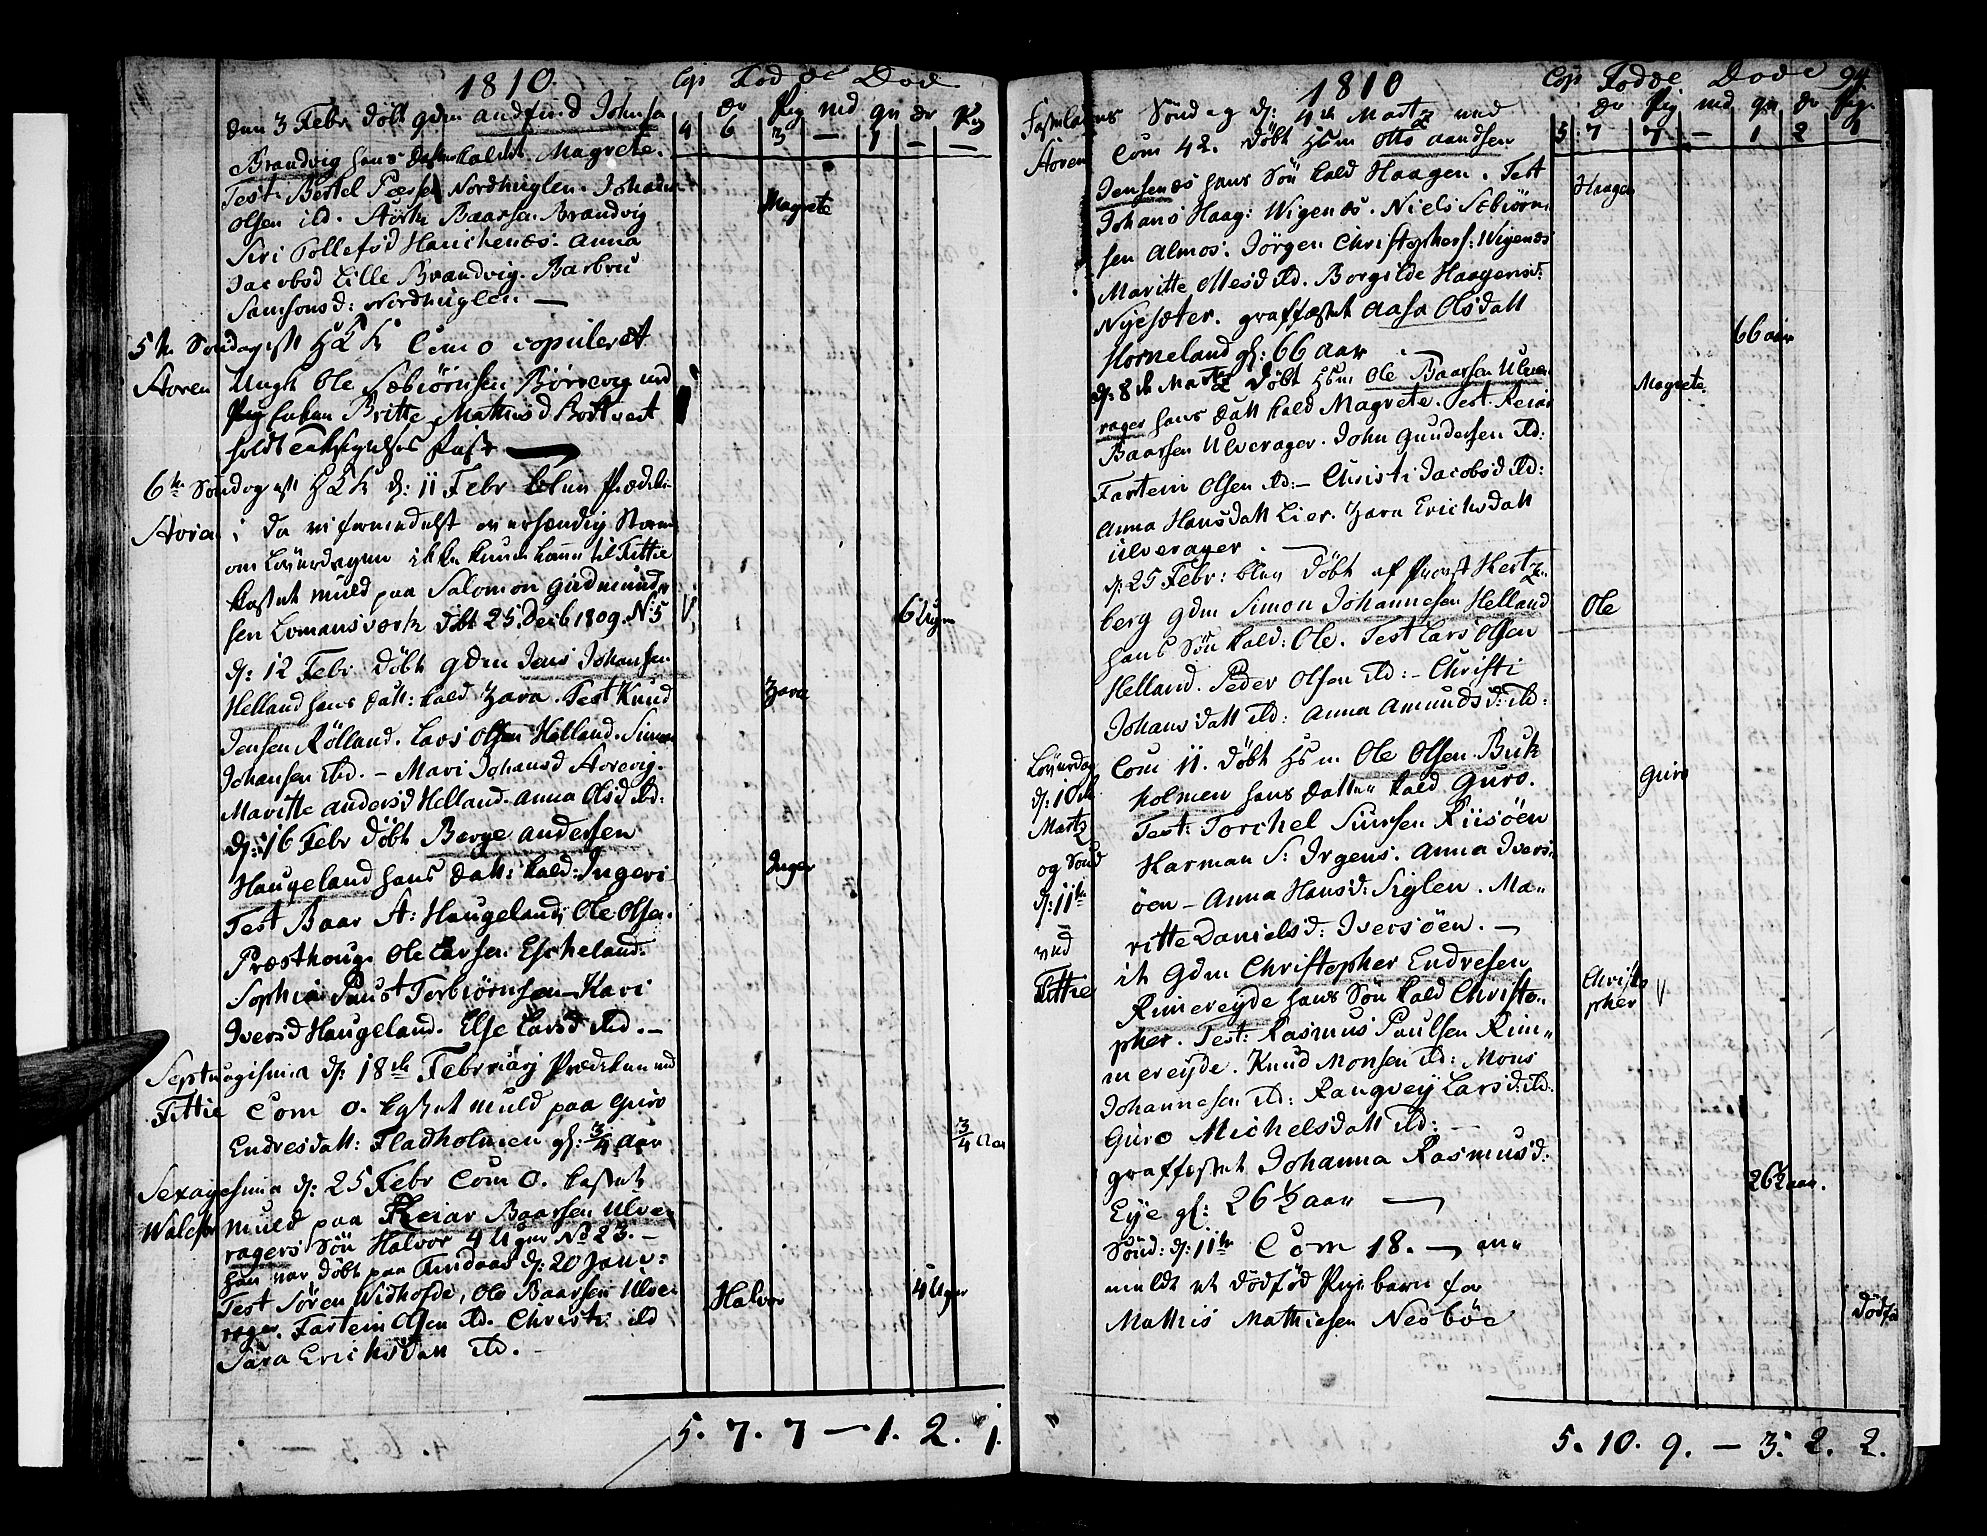 1810. Cop Fødde Døde
dr Pig md qu dr Pig
4 6 3 — 1 — —
den 3 Febr døbt gdm Andfind Johnsø
Brandvig hans datter kaldet Magrete.
Test. Bertel Nordhuglen. Johan
Olsen ibd. Baarsen Brandvig
Siri Tollefsd Hanichenæs. Anna
Jacobsd Lille Brandvig. Barbru
Samsonsd: Nordhuglen. —
Magrete
5te Søndag eft H 3 K Com 0 copuleret
Støren Ungk Ole Sæbiørnsen Børrevig med
Pig Britte Mathisd
holdt
6te Søndag eft H 3 K d: 11 Febr blev Prædike
i da vi formedelst en Storm
om Løverdagen ikke kunde komme til Fittie
kastet muld paa Salomon Gudmund
sen Lomansværk døbt 25 Decb 1809. No 5
6 Uger
d: 12 Febr døbt gdm Jens Johansen
Helland hans datt: kald Zara. Test Knud
Zara
Jensen Rølland. Lars Olsen Helland. Simon
Johansen ibd. — Mari Johansd Storevig.
Maritte Andersd Helland. Anna Olsd ibd:
d: 16 Febr døbt Berge Andersen
Haugeland hans datt: kald: Ingeri
Inger
Test Baar A: Haugeland, Ole Olsen
Præsthoug. Ole Larsen Escheland.
Sophia Torbiørnsen Kari
Iversd Haugeland. Else Larsd ibd. —
Septuagisima d: 18de Februarj Prædiken med
Fittie Com 0. kastet muld paa Guro
Endresdatt: Fladholmen gl: 3/4 Aar
3/4 Aar
Sexagesima d: 25 Febr Com 0. kastet
muld paa Reiar Baarsen Ulve
ragers Søn Halvor 4 Uger No 23. —
han var døbt paa Andaas d: 20 Janv:
Test Søren Widhofde, Ole Baarsen Ulve
Halvor 4 Uger
rager. Fartein Olsen ibd. Christi ibd
Sara Erichsdatt ibd. —
5. 7. 7 — 1. 2. 1.
1810 Cop Fødde Døde 94.
dr Pig md qu dr Pige
5 7 7 — 1 2 1
Fastelavns Søndag d: 4de Martz med
Støren Com 42. døbt Hsm Otto Aandsen
Jensenæs hans Søn kald Haagen. Test
Haagen
Johans Haag: Wigenæs. Niels Sæbiørn
sen Almos. Jørgen Christophers: Wigenæs
Maritte Ottesd ibd. Borgilde Haagensd:
Nyesæter. graffæstet Aasa Olsdatt
Horneland gl: 66 Aar
66 aar
d: 8de Martz døbt Hsm Ole Baarsen Ulve
rager hans datt kald Magrete. Test. Reiar
Magrete
Baarsen Ulverager. John Gundersen ibd:
Fartein Olsen ibd: — Christi Jacobsd ibd:
Anna Hansdatt Lier. Zara Erichsdatt
Ulverager. —
d: 25 Febr: blev døbt af Provst Hertz
berg gdm Simon Johannesen Helland
Ole
hans Søn kald: Ole. Test Lars Olsen
Helland. Peder Olsen ibd: — Christi
Johansdatt ibd: Anna Amundsd: ibd:
Løverdag
d: 10de
Martz
og Sønd
d: 11te
ved
Fittie
Com 11. døbt Hsm Ole Olsen Buk
holmen hans datter kald Guro.
Guro
Test: Torchel Simsen Riisøen
Harman S: Irgens. Anna Ivers
øen — Anna Hansd: Siglen. Ma„
ritte Danielsd: Iversøen. —
it Gdm Christopher Endresen
Rimereyde hans Søn kald Christo„
Christo
pher
pher. Test: Rasmus Paulsen Rim„
mereyde. Knud Monsen ibd: Mons
Johannesen ibd: Rangvej Larsd: ibd:
Guro Michelsdatt ibd: —
graffæstet Johanna Rasmusd:
Eye gl: 26 1/2 aar —
26 1/2 aar.
Sønd: d: 11te Com 18. —
muldt et dødfød Pigebarn for
Mathis Mathiesen Nesbøe
dødfø
5. 10. 9. — 3. 2. 2.